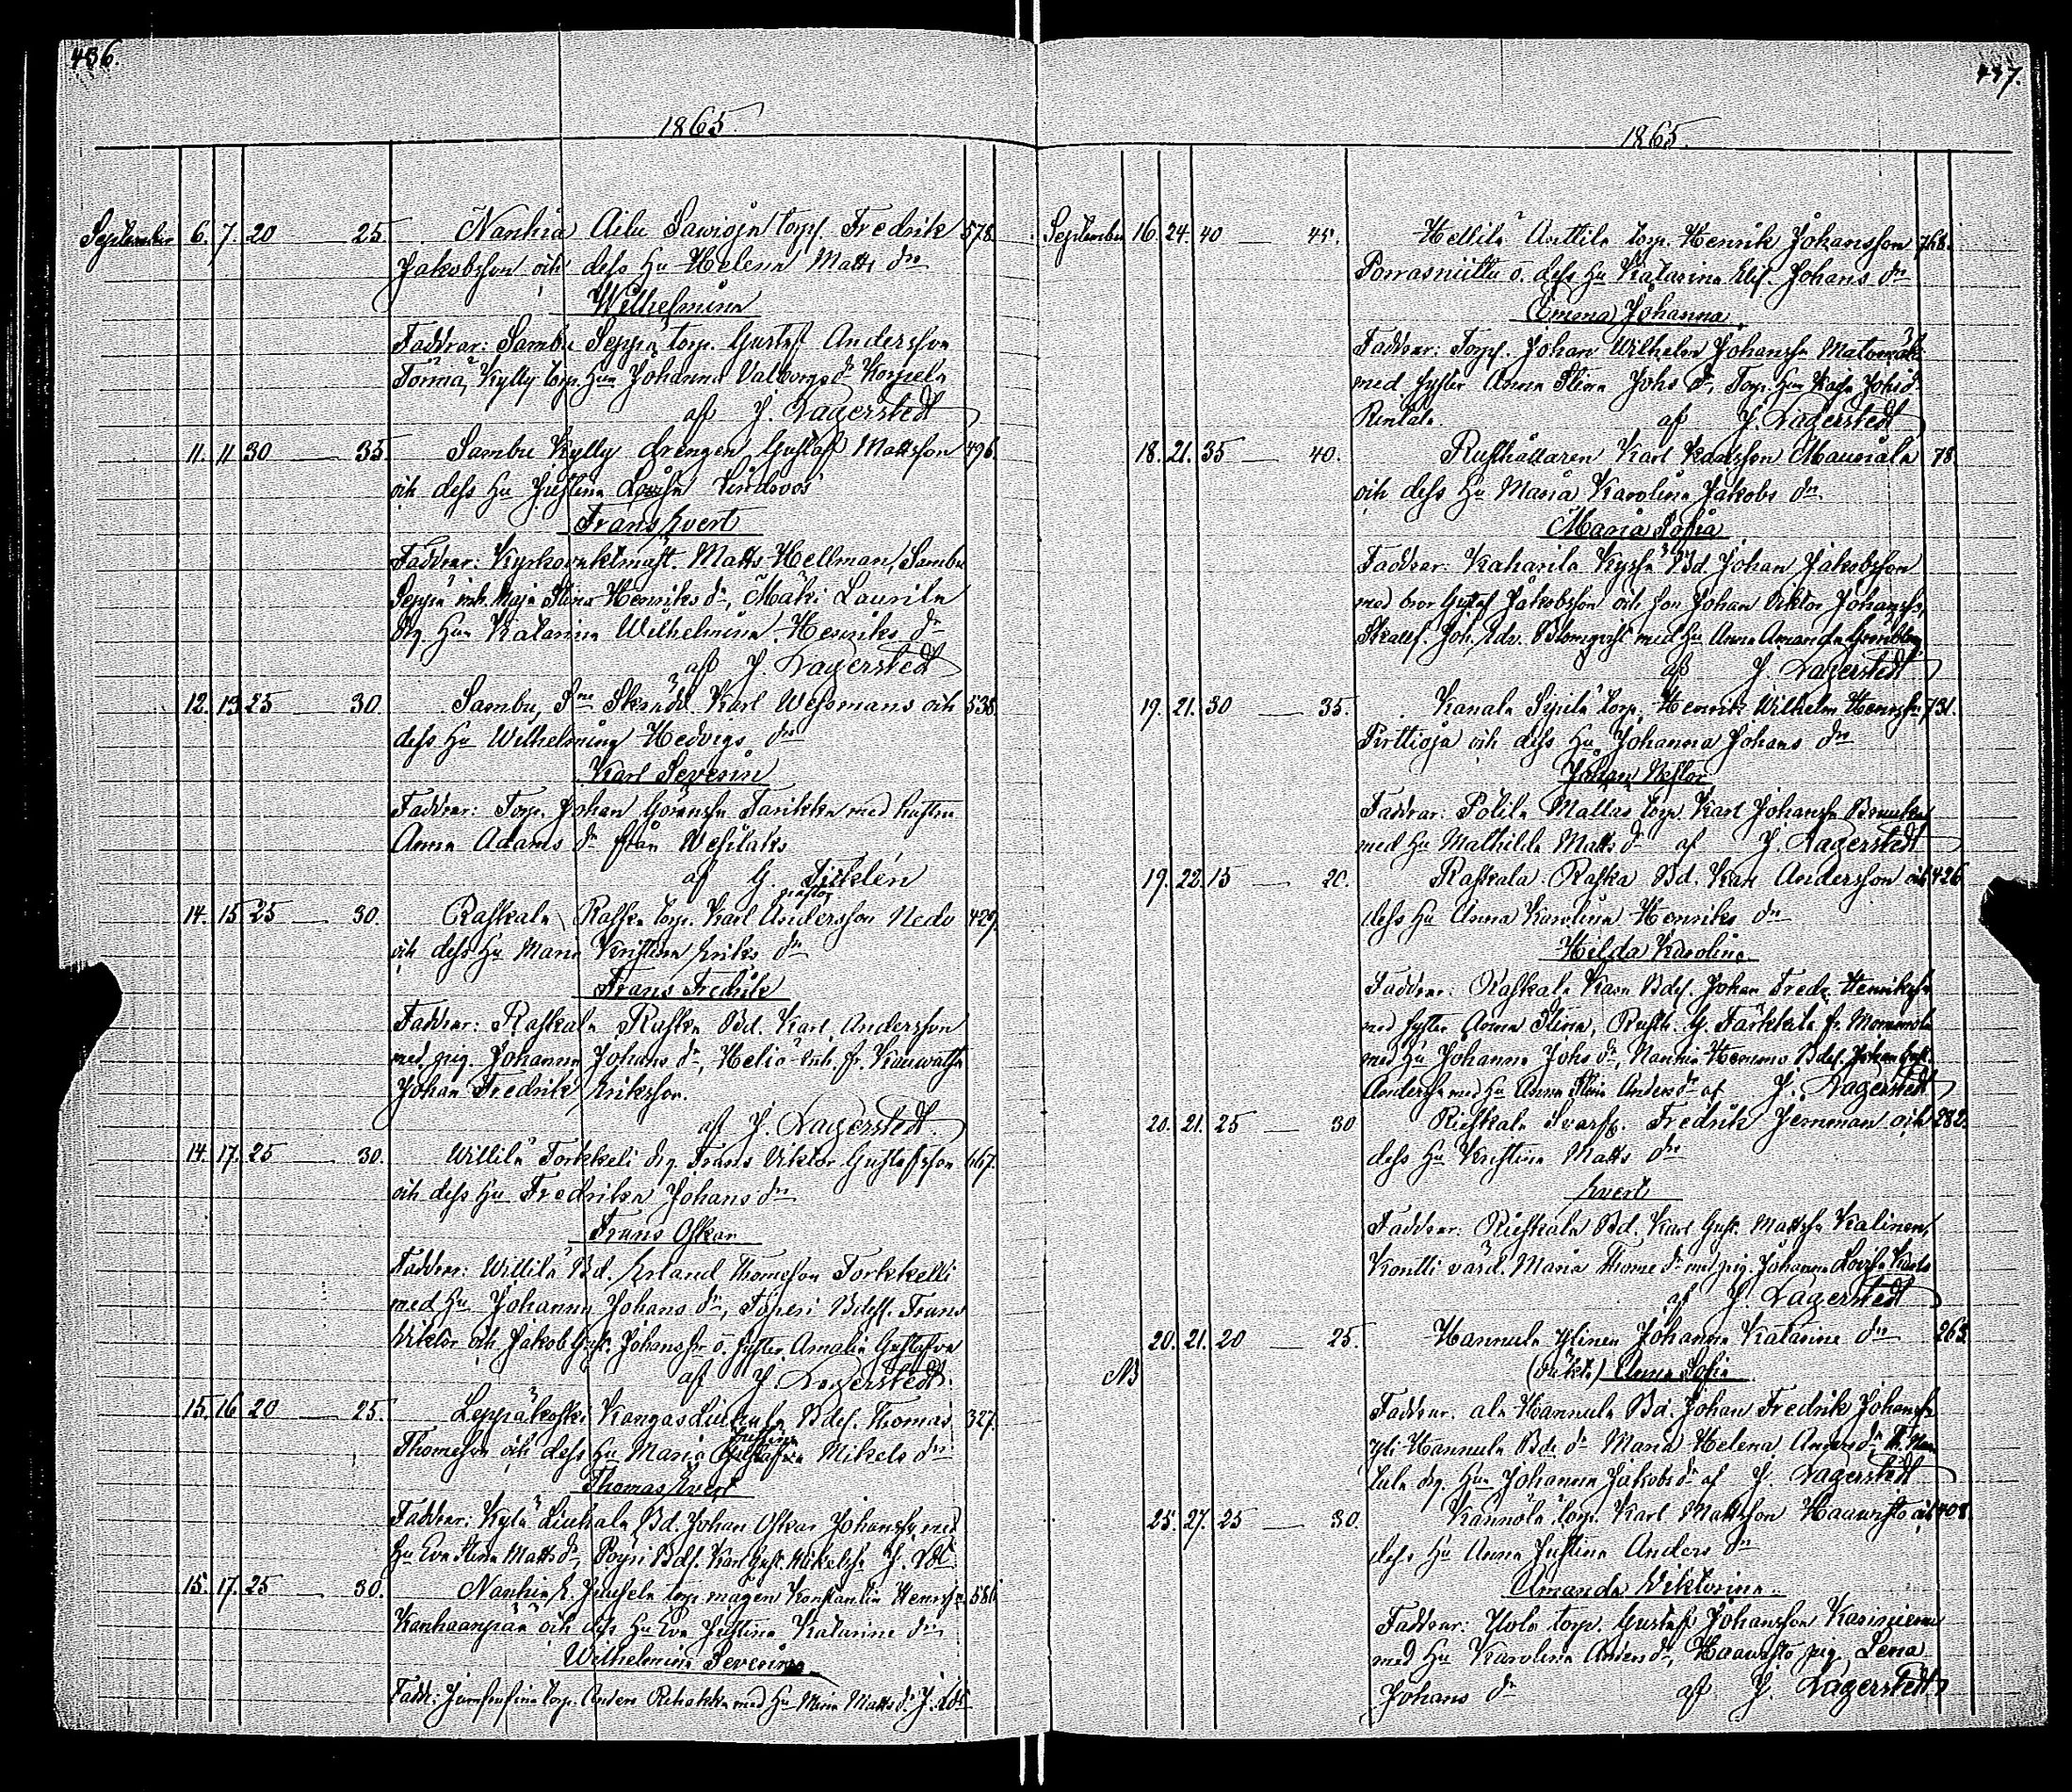 436.
1865.
September 6. 7. 20 — 25. Nanhia Ailu Sawioja torp. Fredrik 578.
Jakobsson och dess Hu Helena Matts dr
Wilhelmina
Faddrar: Sambu Seppä torp. Gustaf Andersson
Törmä, Kylly torp. Hun Johanna Valborgs dr Korpela
af J. Lagerstedt
11. 11 30 — 35. Sambu Kylly drengen Gustaf Mattsson 496.
och dess Hu Justina Lovisa Lindroos
Frans Evert
Faddrar: Kyrkovaktmäst. Matts Hellman, Sambu
Seppä inh. Maja Stina Henriks dr, Mäki Laurila
drg. Hun Katarina Wilhelmina Henriks dr
af J. Lagerstedt
12. 13 25 — 30. Sambu, Karl Wessmans och 538.
dess Hu Wilhelmina Hedvigs dr
Karl Severin
Faddrar: Torp. Johan Göransson Tarikka med hustru
Anna Adams dr från Wesilaks
af G. Ticklén
pastor
14. 15 25 — 30. Raskala Raska torp. Karl Andersson Uedo 429.
och dess Hu Maria Kristina Eriks dr
Frans Fredrik
Faddrar: Raskala Raska Bd. Karl Andersson
med pig. Johanna Johans dr, Heliö inh. fr. Kauwatsa
Johan Fredrik Eriksson.
af J. Lagerstedt.
14. 17. 25 — 30. Willilä Torkkeli drg. Frans Viktor Gustafsson 667.
och dess Hu Fredrika Johans dr
Frans Oskar
Faddrar: Willilä Bd. Erland Thomsson Torkkelli
med Hu Johanna Johans dr, Töperi Bdsf. Frans
Viktor och Jakob Gust. Johanssr o. syster Amalia Gustafva
af J. Lagerstedt.
15. 16 20 — 25. Leppäkoski Kangas Liuhala Bdsf. Thomas 327.
Justina
Thomsson och dess Hu Maria Gustafva Mikels dr
Thomas Evert
Faddrar: Kylä Liuhala Bd. Johan Oskar Johansson med
Hu Eva Stina Matts dr, Poyri Bdsf. Karl Gust. Mikelsson J. Ldt
15. 17. 25 — 30. Nanhia E. Juusela torp. mågen Konstantin Henrss. 586
Kanhaanpää och dess Hu Eva Justina Katarina dr
Wilhelmina Severina
Faddr.: torp. Anders Rehakka med Hu Maria Matts dr J. Ldt
437.
1865.
September 16. 24. 40 — 45. Hellilä Anttila torp. Henrik Johansson 768.
Porrasniittu o. dess Hu Katarina Elis. Johans dr
Emma Johanna
Faddrar: Torps. Johan Wilhelm Johansson
med syster Anna Stina Johs dr, Torp. Hun Kaja Johs dr
Rintala. af J. Lagerstedt
18. 21. 35 — 40. Rusthållaren Karl Karlsson Mauriala 78.
och dess Hu Maria Karolina Jakobs dr
Maria Sofia
Faddrar: Kaharila Kyssä Bd. Johan Jakobsson
med bror Gustaf Jakobsson och son Johan Viktor Johanss.,
Skallf. Joh. Edv. Blomqvist med Hu Anna Amanda
af J. Lagerstedt
19. 21. 30 — 35. Kanala Sipilä torp. Henrik Wilhelm Henrss. 731.
Pirttioja och dess Hu Johanna Johans dr
Johan Nestor
Faddrar: Potila Mallas torp. Karl Johansson
med Hu Mathilda Matts dr af J. Lagerstedt
19. 22. 15 — 20. Raskala Raska Bd. Karl Andersson och 426
dess Hu Anna Karolina Henriks dr
Hilda Karolina
Faddrar: Raskala Kasa Bdsf. Johan Fredr. Henriksson
med syster Anna Stina, Rusth. G. Tarkkila fr. Mommola
med Hu Johanna Johs dr, Nanhia Hemmo Bdsf. Johan Gust.
Andersson med Hu Anna Stina Anders dr af J. Lagerstedt
20. 21. 25 — 30 Rieskala Svarfv. Fredrik Jernman och 282.
dess Hu Kristina Matts dr
Evert
Faddrar: Rieskala Bd. Karl Gust. Mattsson Kalinen,
Kontti värd. Maria Thoms dr med pig. Johanna Lovisa Karls
af J. Lagerstedt
20. 21. 20 — 25. Hannula Ylinen Johanna Katarina dr 263.
NB (oäkta) Anna Sofia
Faddrar. ala Hannula Bd. Johan Fredrik Johansson
Yli-Hannula Bds dr Maria Helena Anders dr
drg. Hun Johanna Jakobs dr af J. Lagerstedt
25. 27. 25 — 30. Kännölä torp. Karl Mattsson Haawisto och 408.
dess Hu Anna Justina Anders dr
Amanda Viktorina
Faddrar: Yłola torp. Gustaf Johansson Kariniemi
med Hu Karolina Anders dr, Haawisto pig. Lena
Johans dr af J. Lagerstedt